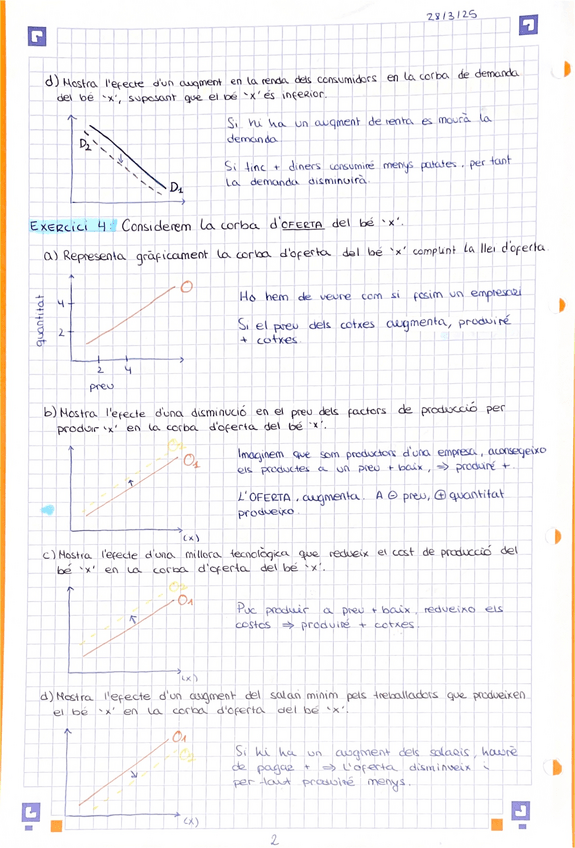 28/3/25
d) Mostra l'efecte d'un augment en la renda dels consumidors en la corba de demanda
del bé 'x', suposant que el bé 'x' és inferior.
Si hi ha un augment de renta es mourà la
demanda
D2
Si tinc + diners consumiré menys patates, per tant
la demanda disminuirà.
D1
EXERCICI 4: Considerem la corba d'OFERTA del bé 'x'.
a) Representa gràficament la corba d'oferta del bé 'x' complint la llei d'oferta.
O
quantitat
4
2
2 4
preu
Ho hem de veure com si fosim un empresari
Si el preu dels cotxes augmenta, produiré
+ cotxes
b) Mostra l'efecte d'una disminució en el preu dels factors de producció per
produir 'x' en la corba d'oferta del bé 'x'.
O2
O1
(x)
Imaginem que som productors d'una empresa, aconsegeixo
els productes a un preu + baix, ⇒ produiré +.
L'OFERTA, augmenta. A ⊖ preu, ⊕ quantitat
produeixo.
c) Mostra l'efecte d'una millora tecnològica que redueix el cost de producció del
bé 'x' en la corba d'oferta del bé 'x'.
O2
O1
(x)
Puc produir a preu + baix, redueixo els
costos ⇒ produiré + cotxes.
d) Mostra l'efecte d'un augment del salari mínim pels treballadors que produeixen
el bé 'x' en la corba d'oferta del bé 'x'.
O1
O2
(x)
Si hi ha un augment dels salaris, hauré
de pagar + ⇒ L'oferta disminueix
per tant produiré menys.
2